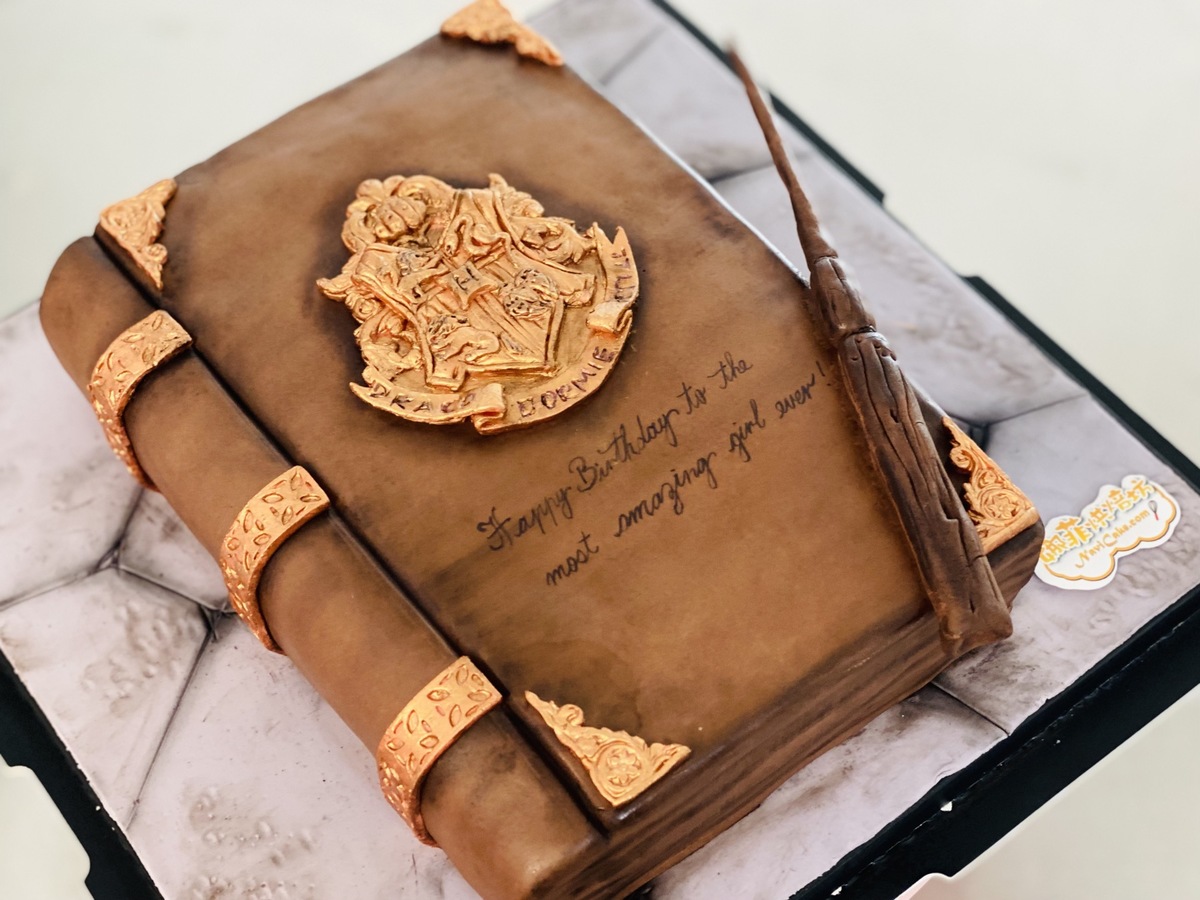 DRACO DORMIE
Happy Birthday to the
most amazing girl ever!
NaviCake.com